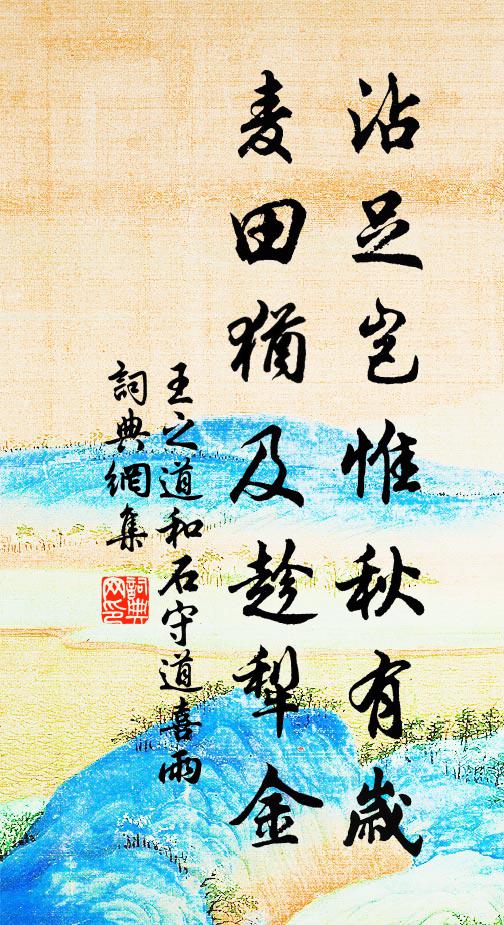 沾足豈惟秋有歲
麦田猶及趁犁金
王之道和石守道喜雨
詞典網集
詞典網印